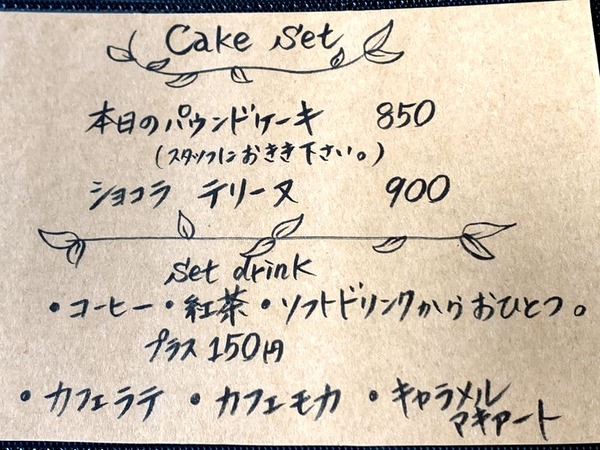 Cake Set
本日のパウンドケーキ 850
(スタッフにおきき下さい。)
ショコラ テリーヌ 900
Set drink
・コーヒー・紅茶・ソフトドリンクからおひとつ。
プラス150円
・カフェラテ ・カフェモカ ・キャラメル
マキアート